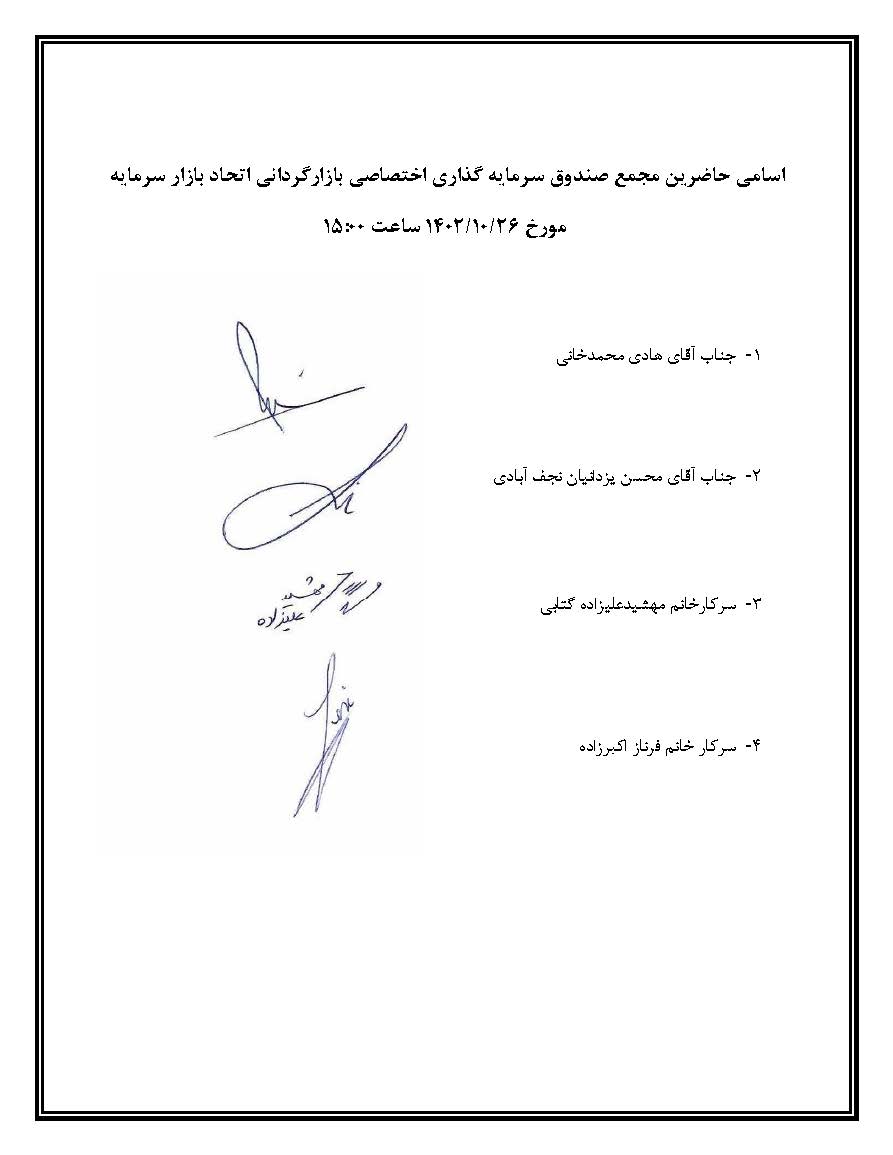 اسامی حاضرین مجمع صندوق سرمایه گذاری اختصاصی بازارگردانی اتحاد بازار سرمایه
مورخ ۱۴۰۲/۱۰/۲۶ ساعت ۱۵:۰۰
۱- جناب آقای هادی محمدخانی
۲- جناب آقای محسن یزدانیان نجف آبادی
۳- سرکارخانم مهشیدعلیزاده گتابی
مهشید
علیزاده
۴- سرکار خانم فرناز اکبرزاده